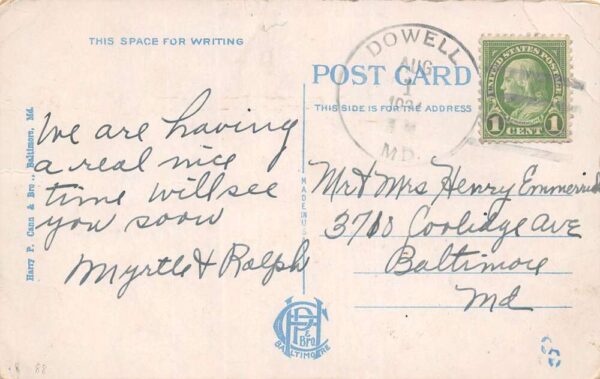 THIS SPACE FOR WRITING
We are having
a real nice
time will see
you soon
Myrtle & Ralph
Harry P. Cann & Bro., Baltimore, Md.
MADE IN U.S.
DOWELL
AUG
1
MD.
POST CARD
THIS SIDE IS FOR THE ADDRESS
UNITED STATES POSTAGE
FRANKLIN
1 CENT 1
Mr & Mrs Henry
3700 Coolidge Ave
Baltimore
Md
& Bro.
BALTIMORE
88